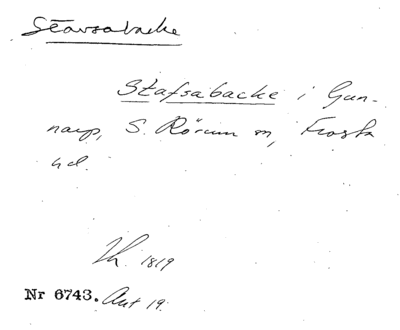 Stavsabacke
Stafsabacke i Gun-
narp, S. Rörum sn, Frosta
hd.
Th. 1819
Nr 6743. Ant 19.